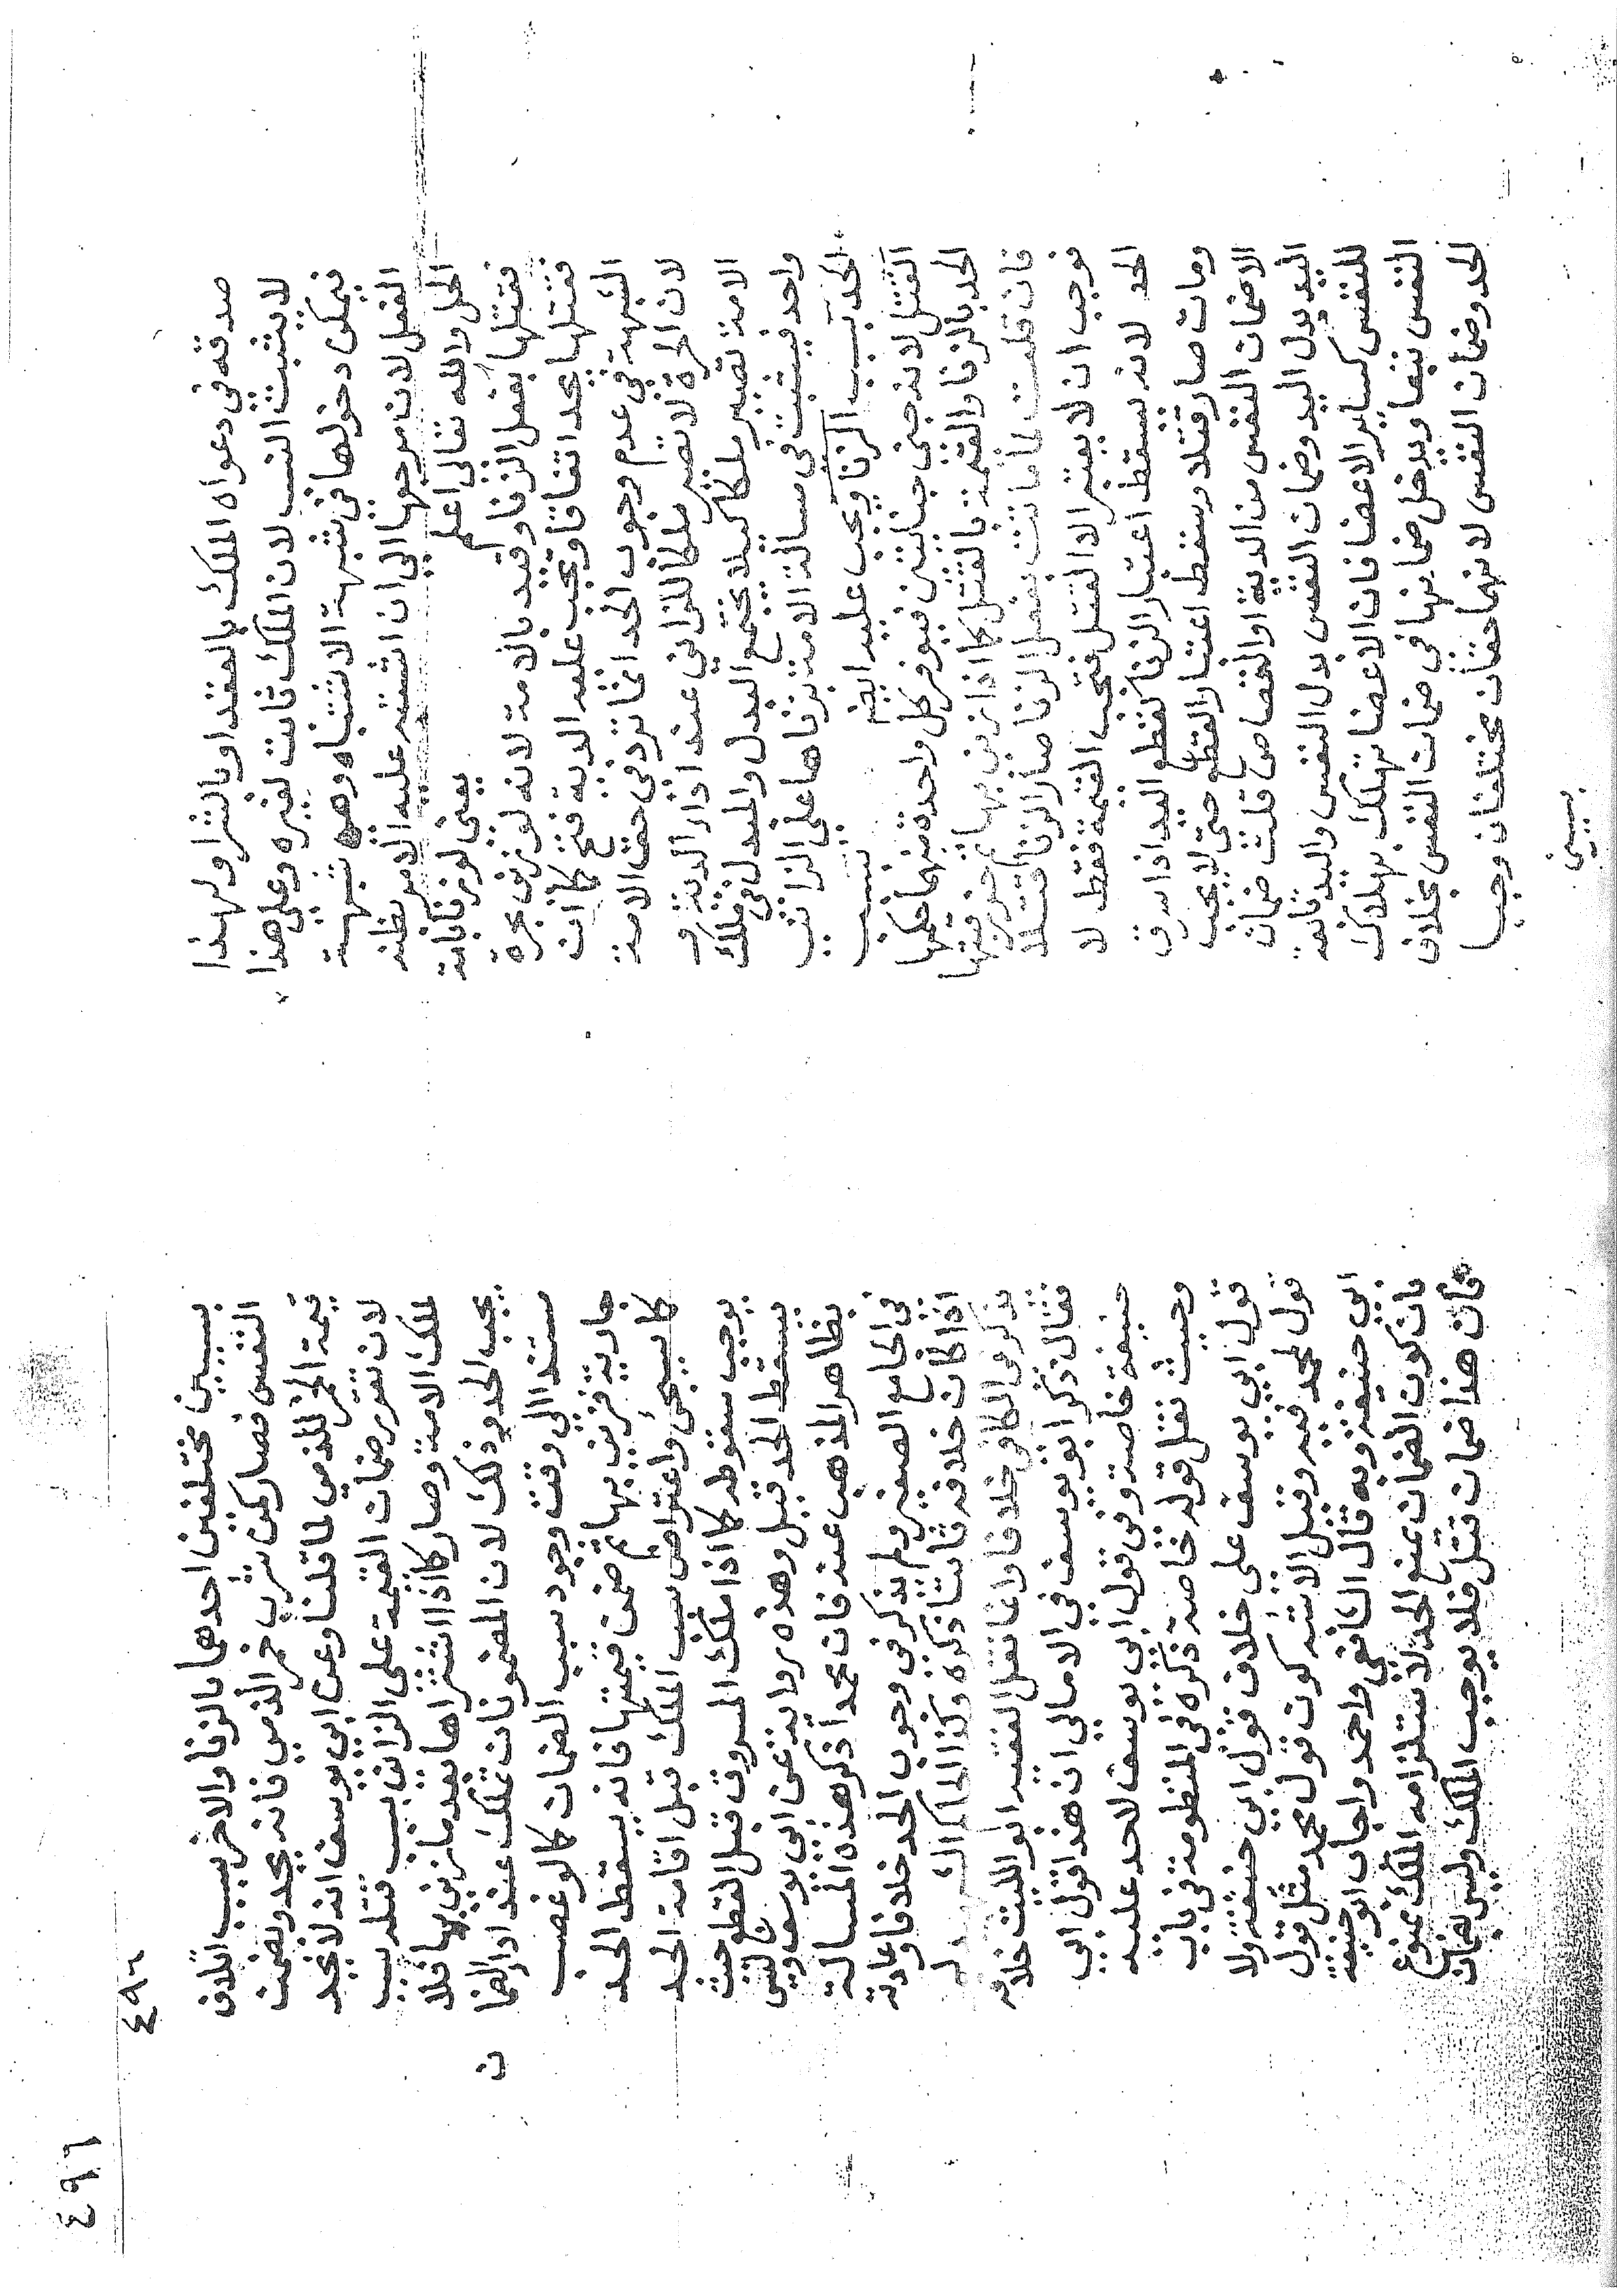 صدقه في دعواه الملك بالعقد او بالشرا ولهذا
لا يثبت النسب لان الملك ثابت لغيره وعلي هذا
فيمكن دخولها في شبهة الاشتباه وهي شبهة
الفعل لان مرجعها الي ان اشتبه عليه الامر بظنه
الحل والله تعالي اعلم يعني لو زنا بامة
فقتلها بفعل الزنا وقيد بالامة لانه لو زني بحرة
فقتلها يحد اتفاقا وتجب عليه الدية فتح كانت
الشبهة في عدم وجوب الحد انما ترد في حق الامة
لان الحرة لا تصير ملكا للزاني عند اداء الدية و
الامة تصير ملكا كيلا يجتمع البدل والمبدل في ملك
واحد فيثبت في مسالة الامة بزناها علي الزاني
الحد بسبب الزنا ويجب عليه ايضا بسبب
القتل لانه جني جنايتين فيوفر كل واحدة منهما حكمها
الحد بالزنا والقيمة بالقتل كما اذا زني بها ثم حز رقبتها
فان قلت لما ماتت بفعل الزنا صار الزنا قتلا
فوجب ان لا يعتبر الا القتل فتجب القيمة فقط لا
الحد لانه يسقط اعتبار الزنا كقطع اليد اذا سرق
ومات صار قتلا وسقط اعتبار القطع حتي لا يجب
الا ضمان النفس من الدية او القصاص قلت ضمان
اليد بدل اليد وضمان النفس بدل النفس واليد تابعة
للنفس كساير الاعضا فان الاعضا تهلك بهلاك
النفس تبعا ويدخل ضمانها في ضمان النفس بخلاف
الحد وضمان النفس لانهما حقان مختلفان وجبا
بسببين
٤٩١
٤٩٦
بسببين مختلفين احدهما بالزنا والاخر بسبب اتلاف
النفس فصار كمن شرب خمر الذمي فانه يحد ويضمن
قيمة الخمر للذمي لما قلنا وعن ابي يوسف انه لا يحد
لان تقرر ضمان القيمة علي الزاني بسبب قتله سبب
لملك الامة وصار كما اذا اشتراها بعد ما زني بها فلا
يجب الحد وذلك لان المضمونات تملك عند اداء الضما
ن
مستندا الي وقت وجود سبب الضمان كما لو غصب
جارية فزني بها ثم ضمن قيمتها فانه يسقط الحد
كما سيجئ واعتراض سبب الملك قبل اقامة الحد
يوجب سقوطه كما اذا ملك المسروق قبل القطع حيث
يسقط الحد قبل وهذه رواية عن ابي يوسف وليس
بظاهر المذهب عنه فان محمدا ذكر هذه المسالة
في الجامع الصغير ولم يذكر في وجوب الحد خلافا وعادته
اذا كان خلافه ثابتا ذكره وكذا الحاكم الشهيد لم
يذكر في الكافي خلافا وانما نقل الفقيه ابو الليث خلافه
فقال ذكر ابو يوسف في الامالي ان هذا قول ابي
حنيفة خاصة وفي قول ابي يوسف لا حد عليه
وحيث نقل قوله خاصة ذكره في المنظومة في باب
قول ابي يوسف علي خلاف قول ابي حنيفة ولا
قول لمحمد فيه وقيل الاشبه كون قول محمد مثل قول
ابي حنيفة وبه قال الشافعي واحمد واجاب ابو حنيفة
بان كون الضمان يمنع الحد لاستلزامه الملك ممنوع
فان هذا ضمان قتل فلا يوجب الملك وليس بضمان